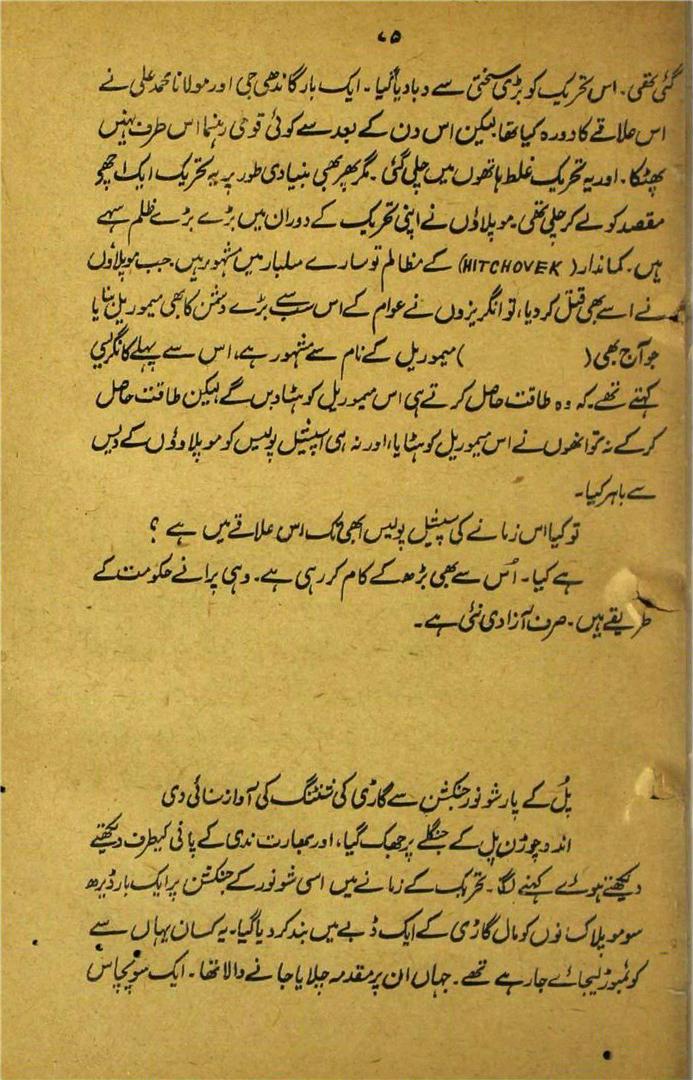 ۷۵
گئی تھی۔ اس تحریک کو بڑی سختی سے دبا دیا گیا۔ ایک بار گاندھی جی اور مولانا محمد علی نے
اس علاقے کا دورہ کیا تھا، لیکن اس دن کے بعد سے کوئی قومی رہنما اس طرف نہیں
پھٹکا۔ اور یہ تحریک غلط ہاتھوں میں چلی گئی۔ مگر پھر بھی بنیادی طور پر یہ تحریک ایک اچھے
مقصد کو لے کر چلی تھی۔ موپلاؤں نے اپنی تحریک کے دوران میں بڑے بڑے ظلم سہے
ہیں۔ کماندار (HITCHOVEK) کے مظالم تو سارے ملبار میں مشہور ہیں۔ جب موپلاؤں
نے اسے بھی قتل کر دیا، تو انگریزوں نے عوام کے اس سب سے بڑے دشمن کا بھی میموریل بنایا
جو آج بھی ( ) میموریل کے نام سے مشہور ہے، اس سے پہلے کانگریسی
کہتے تھے۔ کہ وہ طاقت حاصل کرتے ہی اس میموریل کو ہٹا دیں گے لیکن طاقت حاصل
کر کے نہ تو انھوں نے اس میموریل کو ہٹایا، اور نہ ہی اسپیشل پولیس کو موپلاؤں کے دیس
سے باہر کیا۔
تو کیا اس زمانے کی سپیشل پولیس ابھی تک اس علاقے میں ہے ؟
ہے کیا۔ اُس سے بھی بڑھ کے کام کر رہی ہے۔ وہی پرانے حکومت کے
طریقے ہیں۔ صرف آزادی نئی ہے۔
پُل کے پار شونور جنکشن سے گاڑی کی شنٹنگ کی آواز سنائی دی
اندوچوڑن پل کے جنگلے پر جھک گیا، اور بھارت ندی کے پانی کیطرف دیکھتے
دیکھتے ہوئے کہنے لگا۔ تحریک کے زمانے میں اسی شونور کے جنکشن پر ایک بار ڈیڑھ
سو موپلا کسانوں کو مال گاڑی کے ایک ڈبے میں بند کر دیا گیا۔ یہ کسان یہاں سے
کوئمبوٹر لیجائے جا رہے تھے۔ جہاں ان پر مقدمہ چلایا جانے والا تھا۔ ایک سو پچاس